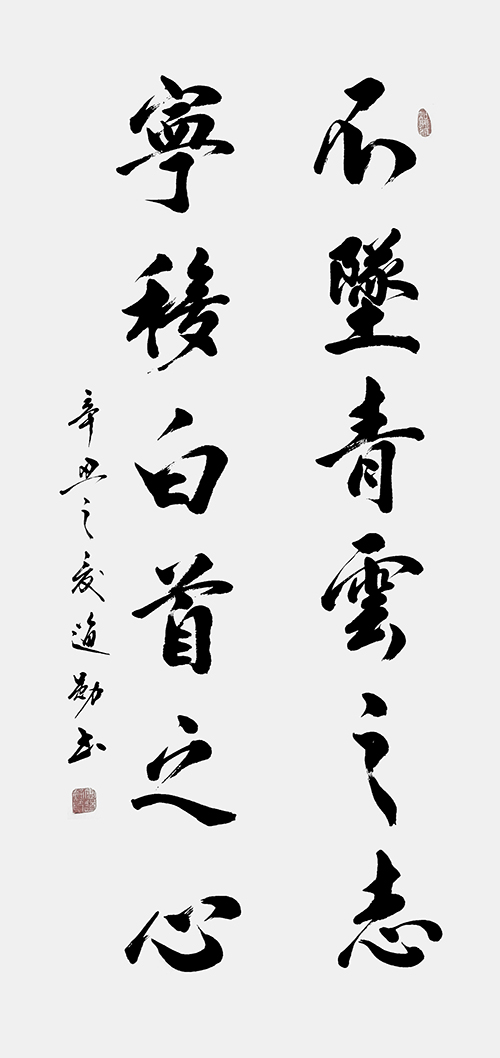 不墜青雲之志
寧移白首之心
辛丑之夏道書